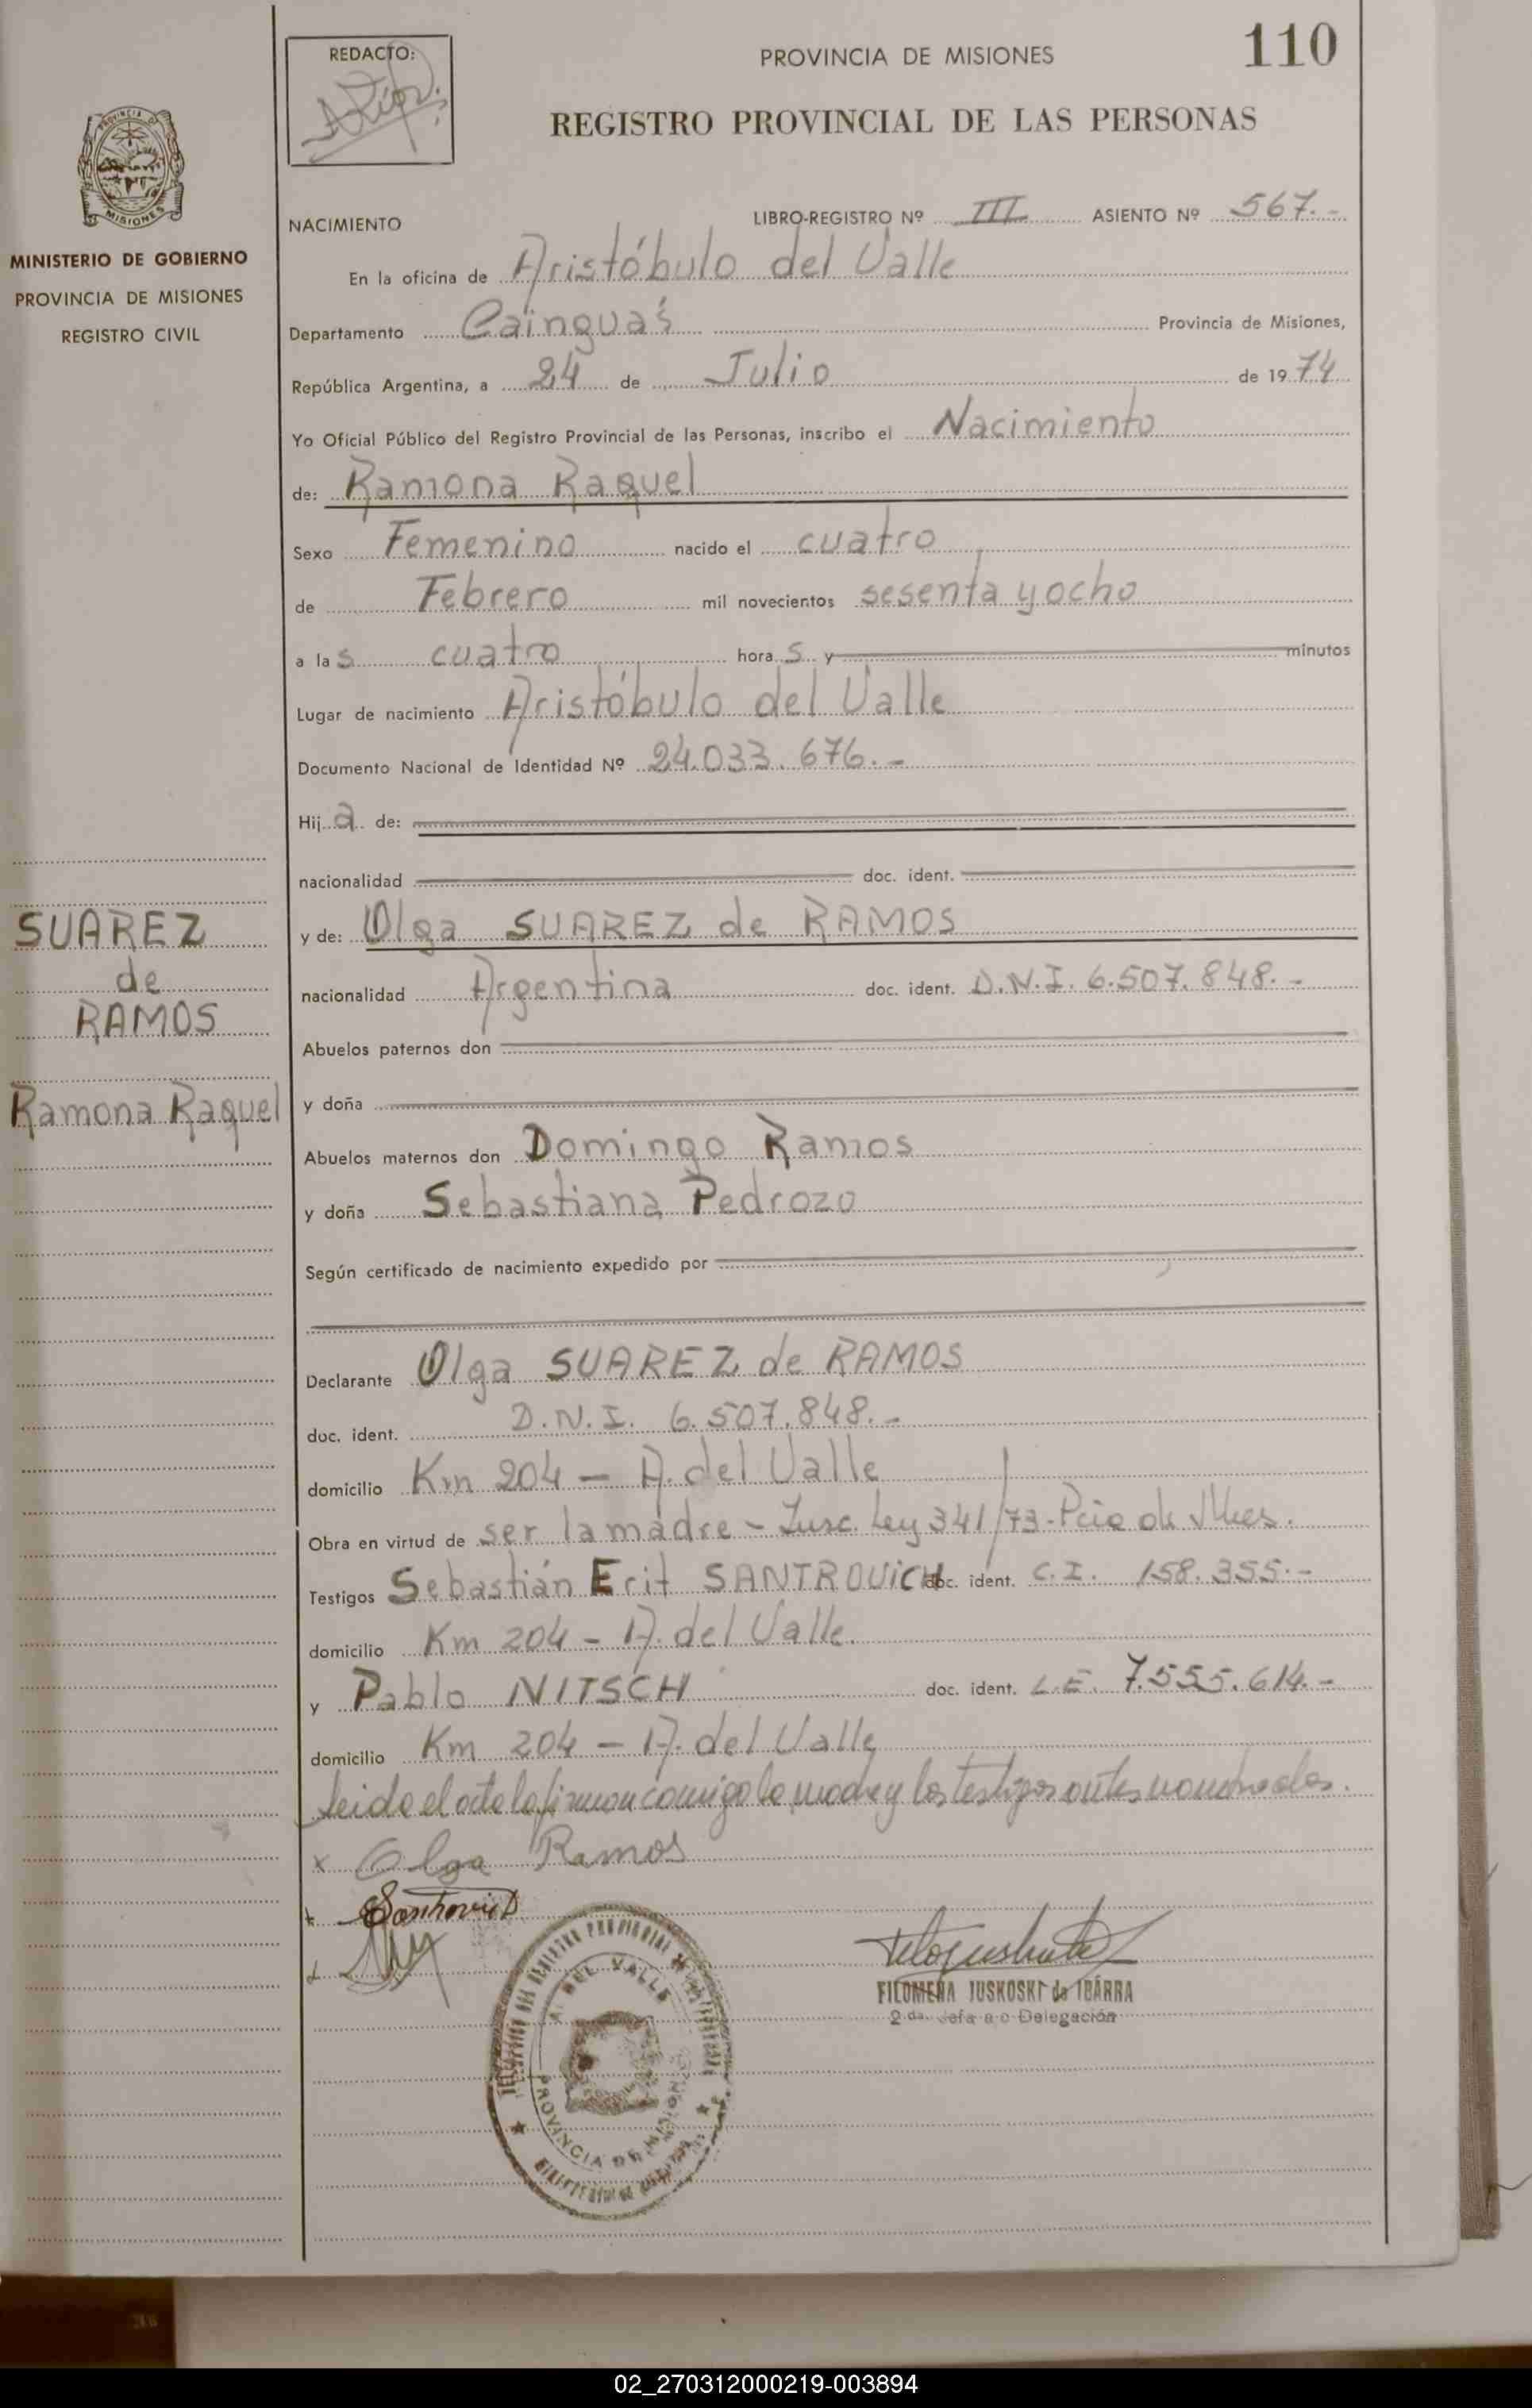 REDACTO:
PROVINCIA DE MISIONES
110
REGISTRO PROVINCIAL DE LAS PERSONAS
MISIONES
MINISTERIO DE GOBIERNO
PROVINCIA DE MISIONES
REGISTRO CIVIL
NACIMIENTO LIBRO-REGISTRO Nº III ASIENTO Nº 567.-
En la oficina de Aristóbulo del Valle
Departamento Cainguás Provincia de Misiones,
República Argentina, a 24 de Julio de 1974
Yo Oficial Público del Registro Provincial de las Personas, inscribo el Nacimiento
de: Ramona Raquel
Sexo Femenino nacido el cuatro
de Febrero mil novecientos sesenta y ocho
a las cuatro horas y minutos
Lugar de nacimiento Aristóbulo del Valle
Documento Nacional de Identidad Nº 24.033.676.-
Hija de:
nacionalidad doc. ident.
SUAREZ
de
RAMOS
Ramona Raquel
y de: Olga SUAREZ de RAMOS
nacionalidad Argentina doc. ident. D.N.I. 6.507.848.-
Abuelos paternos don
y doña
Abuelos maternos don Domingo Ramos
y doña Sebastiana Pedrozo
Según certificado de nacimiento expedido por
Declarante Olga SUAREZ de RAMOS
doc. ident. D.N.I. 6.507.848.-
domicilio Km 204 - A. del Valle
Obra en virtud de ser la madre - Insc. Ley 341/73-Pcia de Mnes.
Testigos Sebastián Erit SANTROVICH doc. ident. C.I. 158.355.-
domicilio Km 204 - A. del Valle.
y Pablo NITSCH doc. ident. L.E. 7.555.614.-
domicilio Km 204 - A. del Valle
Leido el acta la firman conmigo la madre y los testigos antes nombrados.
x Olga Ramos
FILOMENA JUSKOSKI de IBARRA
2 da. Jefa a c Delegación
A. DEL VALLE
PROVINCIA DE MISIONES
02_270312000219-003894